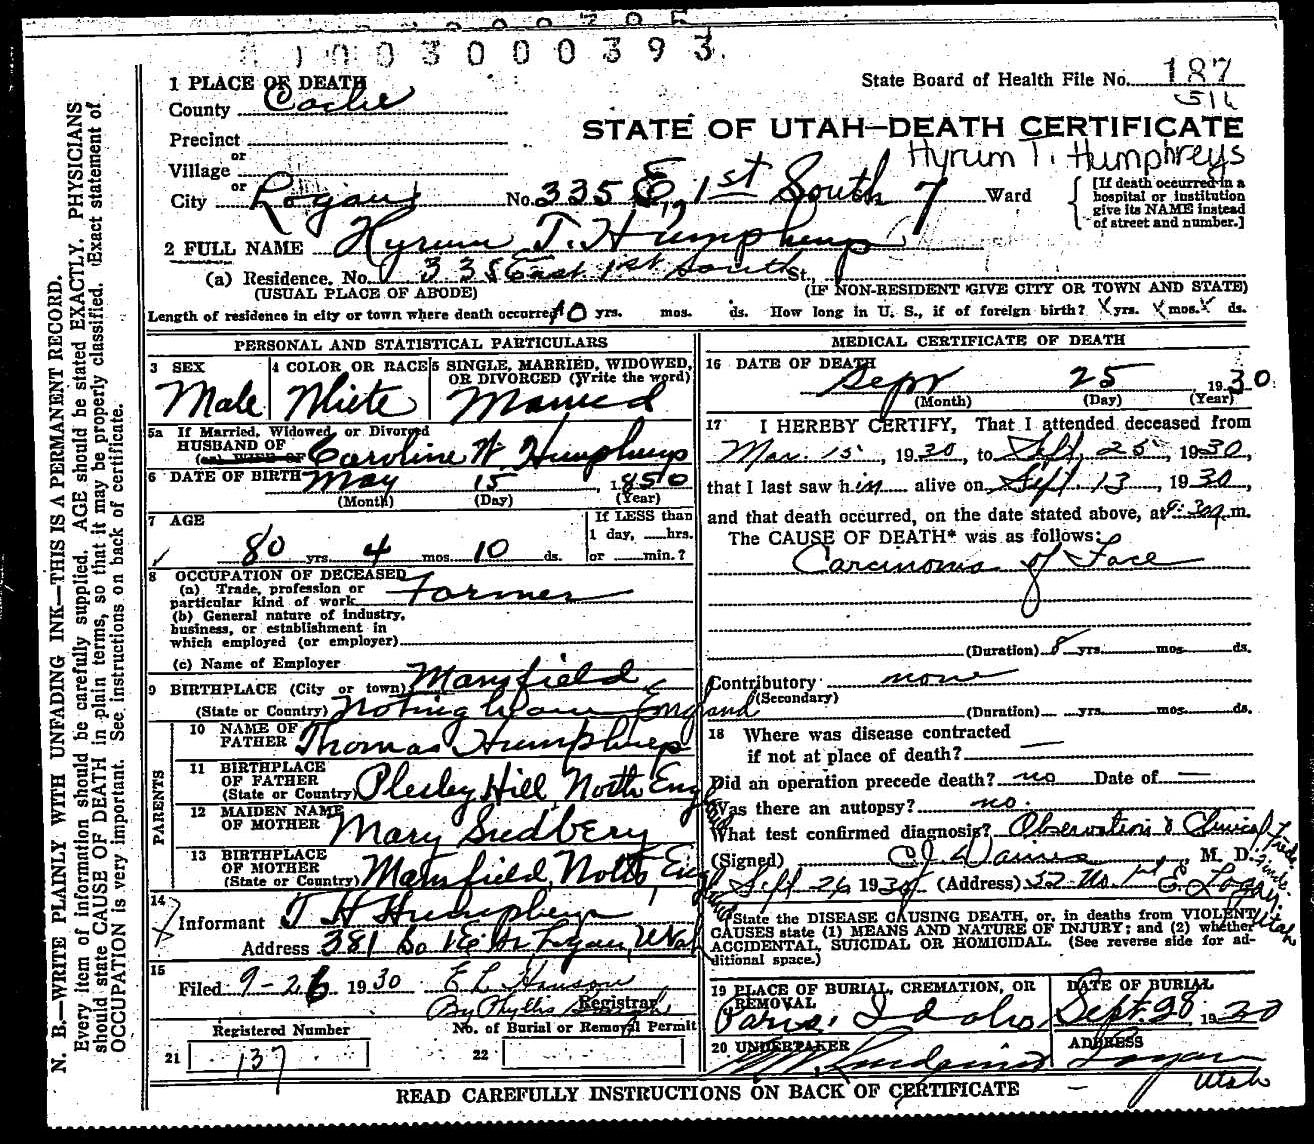 003000393
1 PLACE OF DEATH
State Board of Health File No. 187
County Cache
STATE OF UTAH—DEATH CERTIFICATE
Precinct
Hyrum T. Humphreys
or
Village
or
City Logan No. 335 E, 1st South 7 Ward
[If death occurred in a
hospital or institution
give its NAME instead
of street and number.]
2 FULL NAME Hyrum T. Humphreys
(a) Residence, No. 335 East 1st South St.,
(USUAL PLACE OF ABODE) (IF NON-RESIDENT GIVE CITY OR TOWN AND STATE)
Length of residence in city or town where death occurred 10 yrs. mos. ds. How long in U. S., if of foreign birth? X yrs. X mos. X ds.
PERSONAL AND STATISTICAL PARTICULARS
3 SEX
Male
4 COLOR OR RACE
White
5 SINGLE, MARRIED, WIDOWED,
OR DIVORCED (Write the word)
Married
5a If Married, Widowed, or Divorced
HUSBAND OF
(or) WIFE OF Caroline W. Humphreys
6 DATE OF BIRTH May 15, 1850
(Month) (Day) (Year)
7 AGE
80 yrs. 4 mos. 10 ds.
If LESS than
1 day, hrs.
or min.?
8 OCCUPATION OF DECEASED
(a) Trade, profession or
particular kind of work Farmer
(b) General nature of industry,
business, or establishment in
which employed (or employer)
(c) Name of Employer
9 BIRTHPLACE (City or town) Mansfield
(State or Country) Notingham England
PARENTS
10 NAME OF
FATHER Thomas Humphreys
11 BIRTHPLACE
OF FATHER
(State or Country) Plesley Hill, Notts Eng
12 MAIDEN NAME
OF MOTHER Mary Sudbery
13 BIRTHPLACE
OF MOTHER
(State or Country) Mansfield, Notts, England
14
Informant T H Humpherys
Address 381 So 1 E St Logan, Utah
15
Filed 9-26 1930 E L Hanson
By Phyllis Registrar
Registered Number
21 137
No. of Burial or Removal Permit
22
MEDICAL CERTIFICATE OF DEATH
16 DATE OF DEATH
Sept 25 1930
(Month) (Day) (Year)
17 I HEREBY CERTIFY, That I attended deceased from
Mar. 15, 1930, to Sept. 25, 1930,
that I last saw him alive on Sept. 13, 1930,
and that death occurred, on the date stated above, at 9:30 a. m.
The CAUSE OF DEATH* was as follows:
Carcinoma of Face
(Duration) 8 yrs. mos. ds.
Contributory none
(Secondary)
(Duration) yrs. mos. ds.
18 Where was disease contracted
if not at place of death?
Did an operation precede death? no Date of —
Was there an autopsy? no.
What test confirmed diagnosis? Observation & Clinical Findings
(Signed) , M. D.
Sept 26 1930 (Address) 52 No. 1st E. Logan Utah
*State the DISEASE CAUSING DEATH, or, in deaths from VIOLENT
CAUSES state (1) MEANS AND NATURE OF INJURY; and (2) whether
ACCIDENTAL, SUICIDAL OR HOMICIDAL. (See reverse side for ad-
ditional space.)
19 PLACE OF BURIAL, CREMATION, OR
REMOVAL
Paris, Idaho
DATE OF BURIAL
Sept. 28, 1930
20 UNDERTAKER
ADDRESS
Logan
Utah
READ CAREFULLY INSTRUCTIONS ON BACK OF CERTIFICATE
N. B.—WRITE PLAINLY WITH UNFADING INK—THIS IS A PERMANENT RECORD.
Every item of information should be carefully supplied. AGE should be stated EXACTLY. PHYSICIANS
should state CAUSE OF DEATH in plain terms, so that it may be properly classified. Exact statement of
OCCUPATION is very important. See instructions on back of certificate.